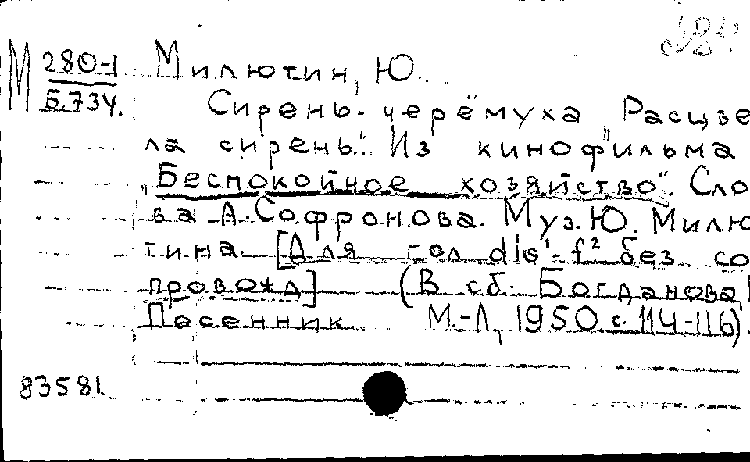 М 280-1 Милютин, Ю.
Б.734.
Сирень-черёмуха „Расцве
ла сирень." Из кинофильма
„Беспокойное хозяйство". Сло
ва А.Софронова. Муз. Ю. Милю
тина. [Для гол. dis¹-f² без со
провожд] (В сб: Богданова!
Песенник М.-Л, 1950 с. 114-116).
83581.